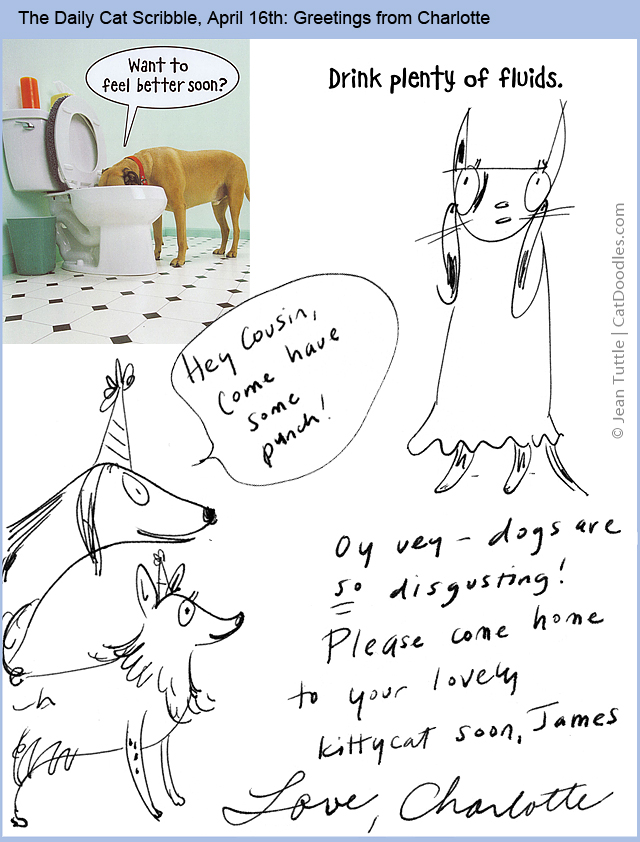 The Daily Cat Scribble, April 16th: Greetings from Charlotte
Want to
feel better soon?
Drink plenty of fluids.
© Jean Tuttle | CatDoodles.com
Hey Cousin,
Come have
some
punch!
Oy vey – dogs are
so disgusting!
Please come home
to your lovely
kittycat soon, James
Love, Charlotte